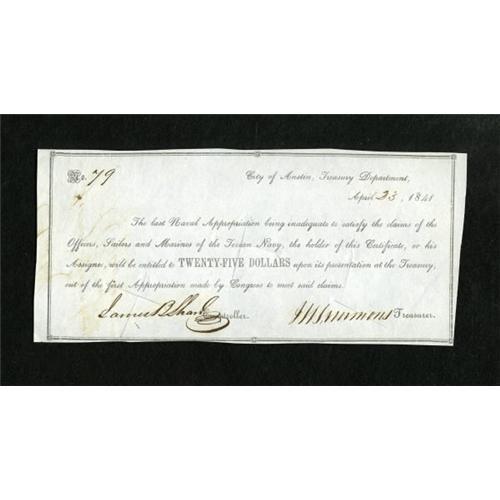 No. 79
City of Austin, Treasury Department,
April 23, 1841
The last Naval Appropriation being inadequate to satisfy the claims of the
Officers, Sailors and Marines of the Texian Navy, the holder of this Certificate, or his
Assignee, will be entitled to TWENTY-FIVE DOLLARS upon its presentation at the Treasury,
out of the first Appropriation made by Congress to meet said claims.
James B Shaw Comptroller. Treasurer.